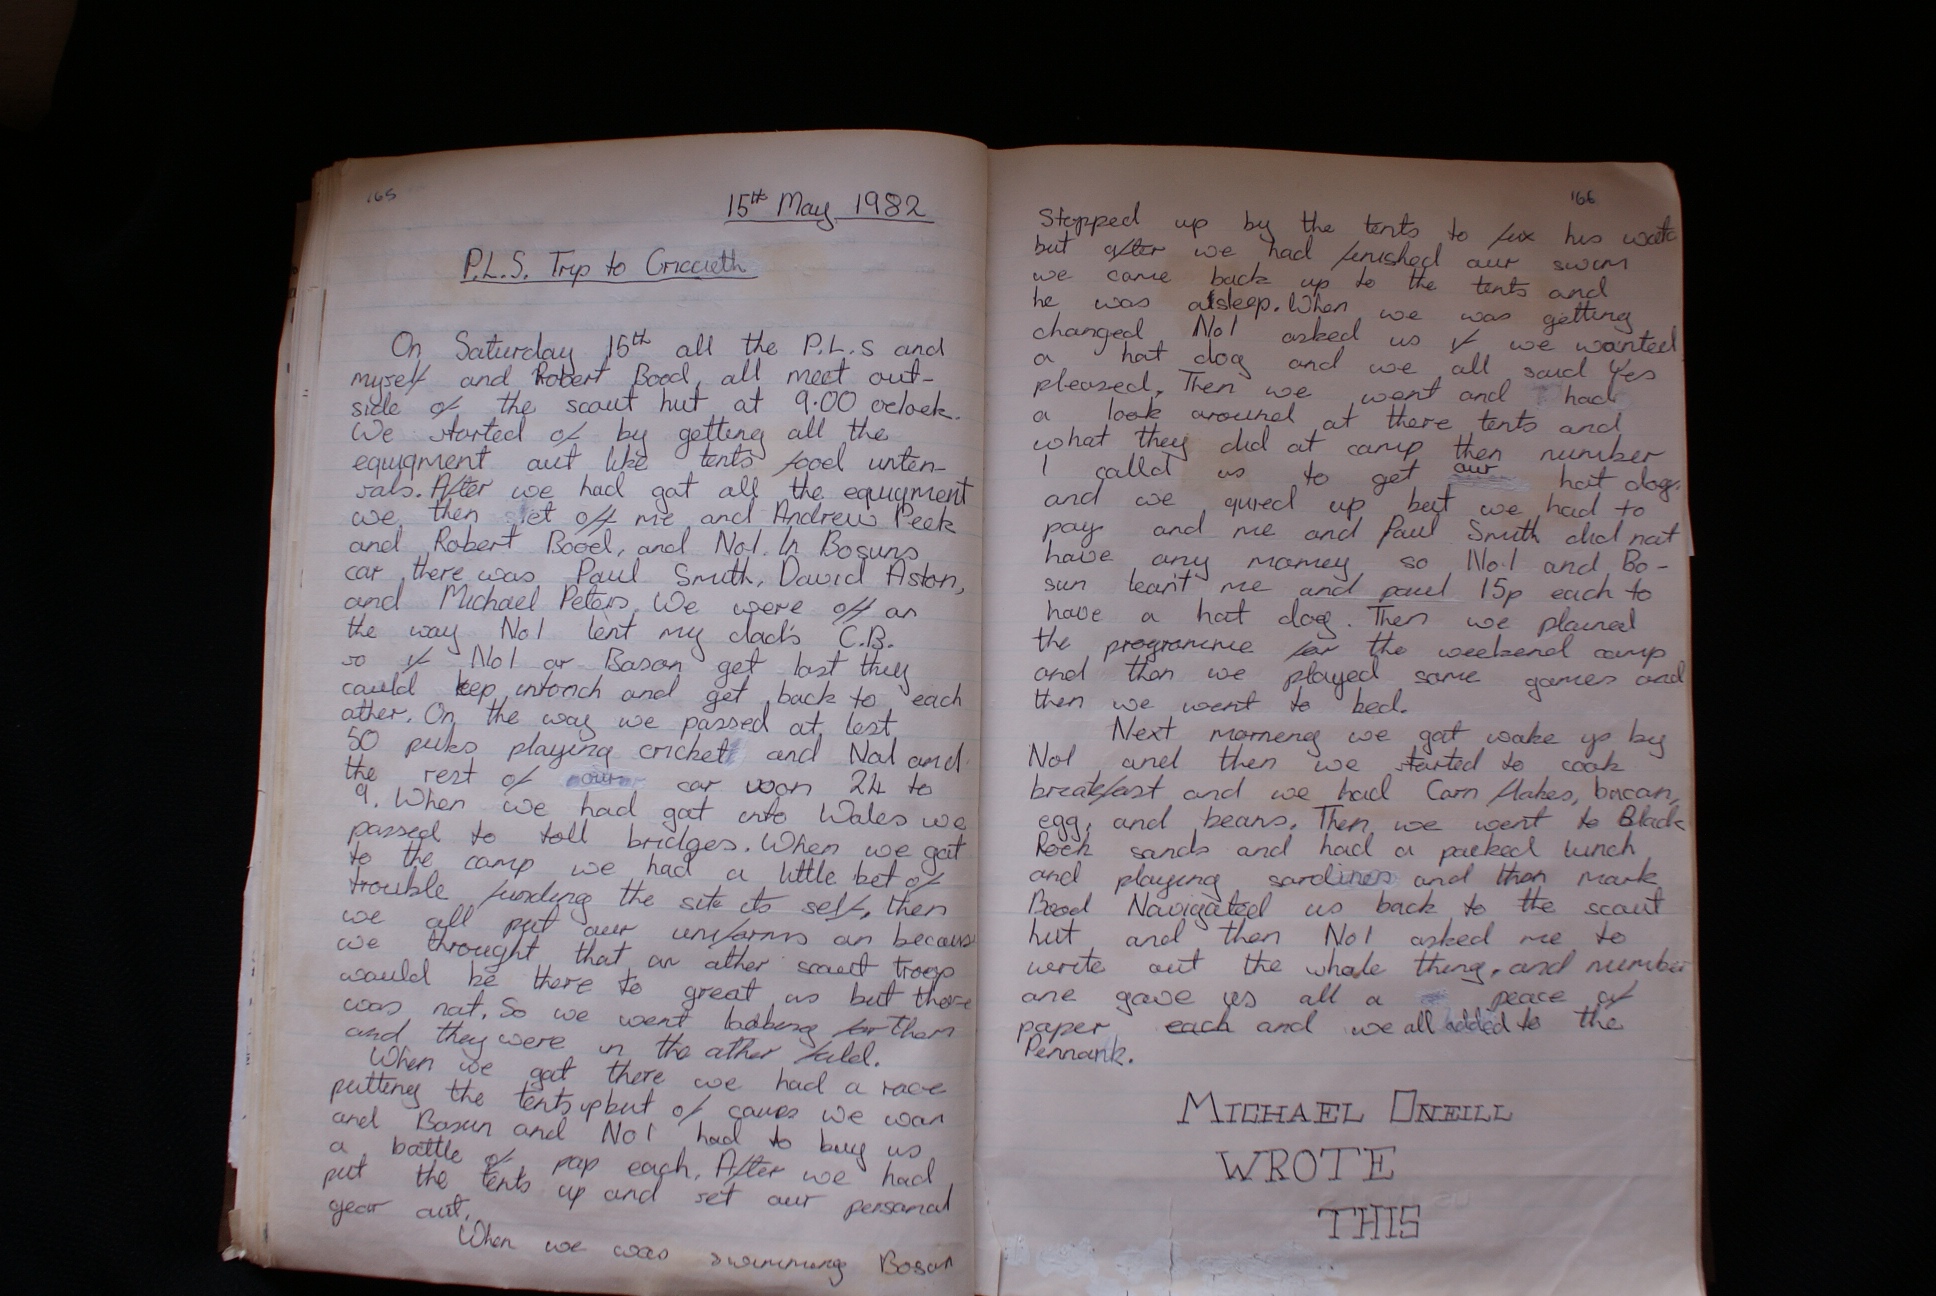 165
15th May 1982
P.L.S. Trip to Criccieth
On Saturday 15th all the P.L.S and
myself and Robert Bood, all meet out-
side of the scout hut at 9.00 oclock.
We started of by getting all the
equiqment out like tents food unten-
sals. After we had got all the equiqment
we then set off me and Andrew Peek
and Robert Bood, and No1. In Bosuns
car there was Paul Smith, David Aston,
and Michael Peters. We were off on
the way No1 lent my dad's C.B.
so if No1 or Boson get lost they
could kep intouch and get back to each
other. On the way we passed at lest
50 pubs playing cricket and No1 and
the rest of our car won 24 to
9. When we had got into Wales we
passed to toll bridges. When we got
to the camp we had a little bet of
trouble funding the site its self, then
we all put our uniforms on becaus
we throught that an other scout troop
would be there to great us but there
was not. So we went looking for them
and they were in the other feild.
When we got there we had a race
putting the tents up but of caures we won
and Bosun and No1 had to buy us
a bottle of pop each. After we had
put the tents up and set our personal
gear out.
When we was swimming Boson
166
Stopped up by the tents to fix his watch
but after we had finished our swim
we came back up to the tents and
he was alsleep. When we was getting
changed No1 asked us if we wanted
a hot dog and we all said Yes
pleased. Then we went and had
a look around at there tents and
what they did at camp then number
1 calld us to get our hot dogs.
and we qured up but we had to
pay and me and Paul Smith did not
have any momey so No.1 and Bo-
sun leant me and paul 15p each to
have a hot dog. Then we planed
the programme for the weekend camp
and then we played some games and
then we went to bed.
Next morneng we got wake up by
No1 and then we started to cook
breakfast and we had Corn flakes, bacan,
egg, and beans. Then we went to Black
Rock sands and had a packed lunch
and playing sardines and then mark
Bood Navigated us back to the scout
hut and then No1 asked me to
write out the whole thing. and number
one gave us all a peace of
paper each and we all added to the
Pennank.
MICHAEL ONEILL
WROTE
THIS